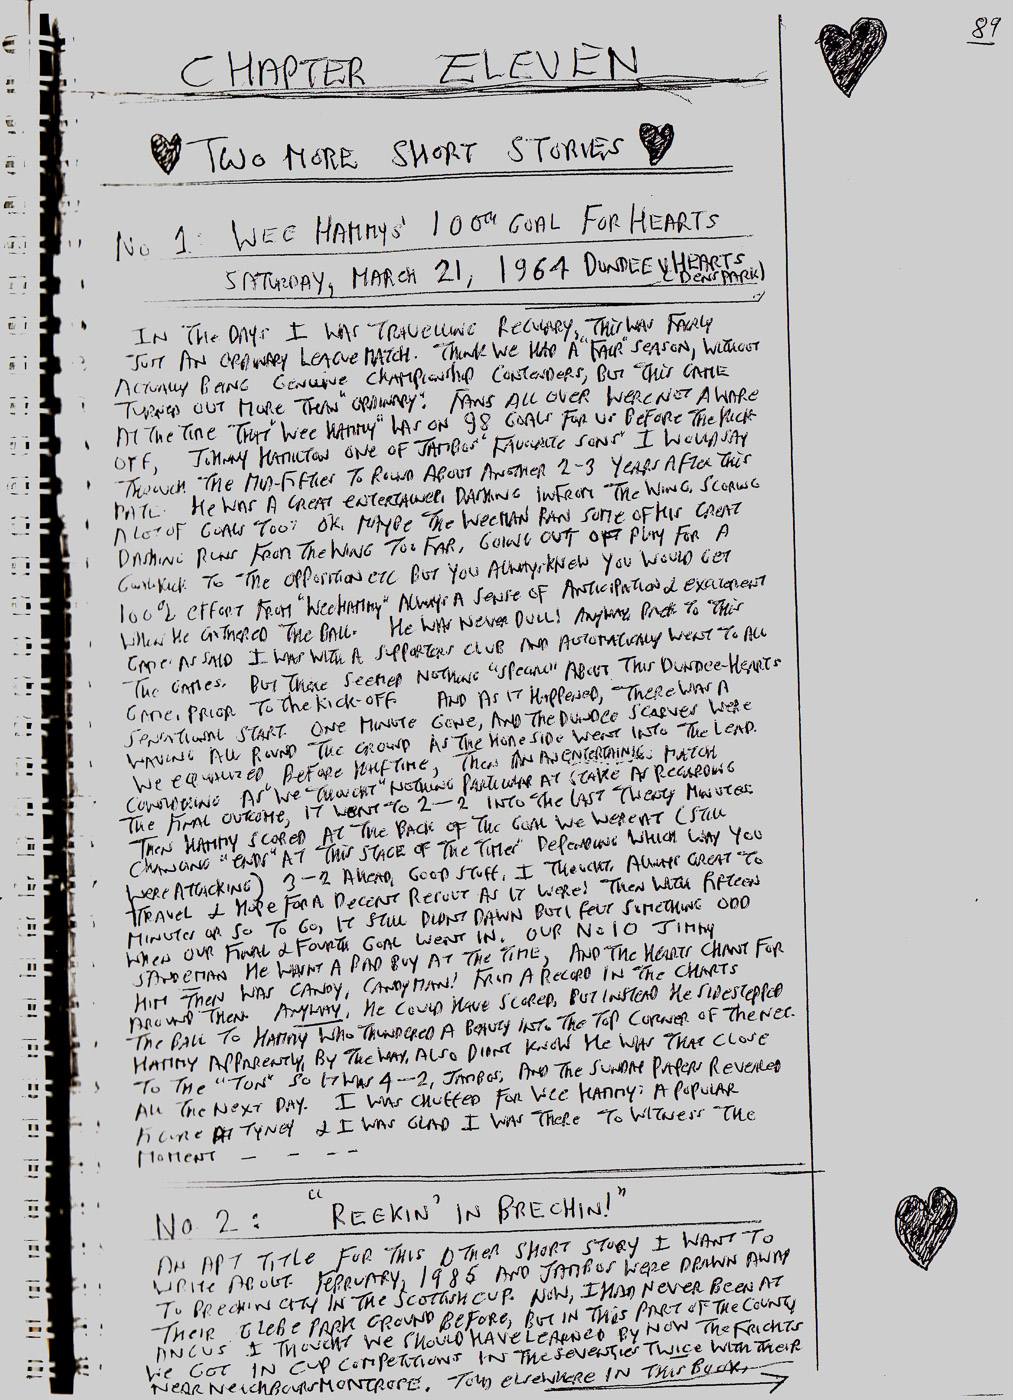 89
CHAPTER ELEVEN
TWO MORE SHORT STORIES
No 1: WEE HAMMYS' 100TH GOAL FOR HEARTS
SATURDAY, MARCH 21, 1964 DUNDEE V HEARTS
(DENS PARK)
IN THE DAYS I WAS TRAVELLING REGULARY, THIS WAS FAIRLY
JUST AN ORDINARY LEAGUE MATCH. THINK WE HAD A "FAIR" SEASON, WITHOUT
ACTUALLY BEING GENUINE CHAMPIONSHIP CONTENDERS, BUT THIS GAME
TURNED OUT MORE THAN "ORDINARY". FANS ALL OVER WERE NOT AWARE
AT THE TIME THAT "WEE HAMMY" WAS ON 98 GOALS FOR US BEFORE THE KICK
OFF, JOHNNY HAMILTON ONE OF JAMBOS' FAVOURITE SONS I WOULD SAY
THROUGH THE MID-FIFTIES TO ROUND ABOUT ANOTHER 2-3 YEARS AFTER THIS
DATE. HE WAS A GREAT ENTERTAINER, DASHING IN FROM THE WING, SCORING
A LOT OF GOALS TOO! OK, MAYBE THE WEE MAN RAN SOME OF HIS GREAT
DASHING RUNS FROM THE WING TOO FAR, GOING OUT OFF PLAY FOR A
GOALKICK TO THE OPPOSITION ETC BUT YOU ALWAYS KNEW YOU WOULD GET
100% EFFORT FROM "WEE HAMMY" ALWAYS A SENSE OF ANTICIPATION & EXCITEMENT
WHEN HE GATHERED THE BALL. HE WAS NEVER DULL! ANYWAY, BACK TO THIS
GAME. AS SAID I WAS WITH A SUPPORTERS CLUB AND AUTOMATICALLY WENT TO ALL
THE GAMES. BUT THERE SEEMED NOTHING "SPECIAL" ABOUT THIS DUNDEE-HEARTS
GAME, PRIOR TO THE KICK-OFF AND AS IT HAPPENED, THERE WAS A
SENSATIONAL START. ONE MINUTE GONE, AND THE DUNDEE SCARVES WERE
WAVING ALL ROUND THE GROUND AS THE HOME SIDE WENT INTO THE LEAD.
WE EQUALIZED BEFORE HALF TIME, THEN IN AN ENTERTAINING MATCH
CONSIDERING AS "WE THOUGHT" NOTHING PARTICULAR AT STAKE AS REGARDING
THE FINAL OUTCOME, IT WENT TO 2-2 INTO THE LAST TWENTY MINUTES.
THEN HAMMY SCORED AT THE BACK OF THE GOAL WE WERE AT (STILL
CHANGING "ENDS" AT THIS STAGE OF THE TIMES DEPENDING WHICH WAY YOU
WERE ATTACKING) 3-2 AHEAD, GOOD STUFF, I THOUGHT, ALWAYS GREAT TO
TRAVEL & HOPE FOR A DECENT RESULT AS IT WERE! THEN WITH FIFTEEN
MINUTES OR SO TO GO, IT STILL DIDNT DAWN BUT I FELT SOMETHING ODD
WHEN OUR FINAL & FOURTH GOAL WENT IN. OUR No 10 JIMMY
SANDEMAN HE WASNT A BAD BUY AT THE TIME, AND THE HEARTS CHANT FOR
HIM THEN WAS CANDY, CANDYMAN! FROM A RECORD IN THE CHARTS
AROUND THEN. ANYWAY, HE COULD HAVE SCORED, BUT INSTEAD HE SIDESTEPPED
THE BALL TO HAMMY WHO THUNDERED A BEAUTY INTO THE TOP CORNER OF THE NET.
HAMMY APPARENTLY, BY THE WAY, ALSO DIDNT KNOW HE WAS THAT CLOSE
TO THE "TON" SO IT WAS 4-2, JAMBOS, AND THE SUNDAY PAPERS REVEALED
ALL THE NEXT DAY. I WAS CHUFFED FOR WEE HAMMY: A POPULAR
FIGURE AT TYNEY & I WAS GLAD I WAS THERE TO WITNESS THE
MOMENT - - - -
No 2: "REEKIN' IN BRECHIN!"
AN APT TITLE FOR THIS OTHER SHORT STORY I WANT TO
WRITE ABOUT. FEBRUARY, 1985 AND JAMBOS WERE DRAWN AWAY
TO BRECHIN CITY IN THE SCOTTISH CUP. NOW, I HAD NEVER BEEN AT
THEIR GLEBE PARK GROUND BEFORE, BUT IN THIS PART OF THE COUNTY
ANGUS I THOUGHT WE SHOULD HAVE LEARNED BY NOW THE FRIGHTS
WE GOT IN CUP COMPETITIONS IN THE SEVENTIES TWICE WITH THEIR
NEAR NEIGHBOURS MONTROSE. TOLD ELSEWHERE IN THIS BOOK,